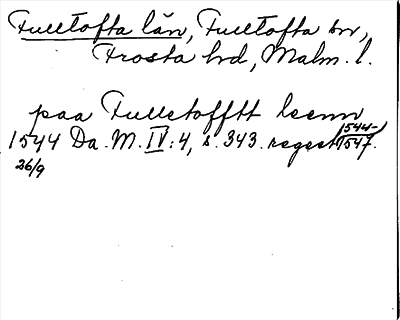 Fulltofta län, Fulltofta sn,
Frosta hd, Malm. l.
paa Fulletofftt leenn
1544 Da. M. IV:4, s. 343. regest 1544-
26/9 1547.